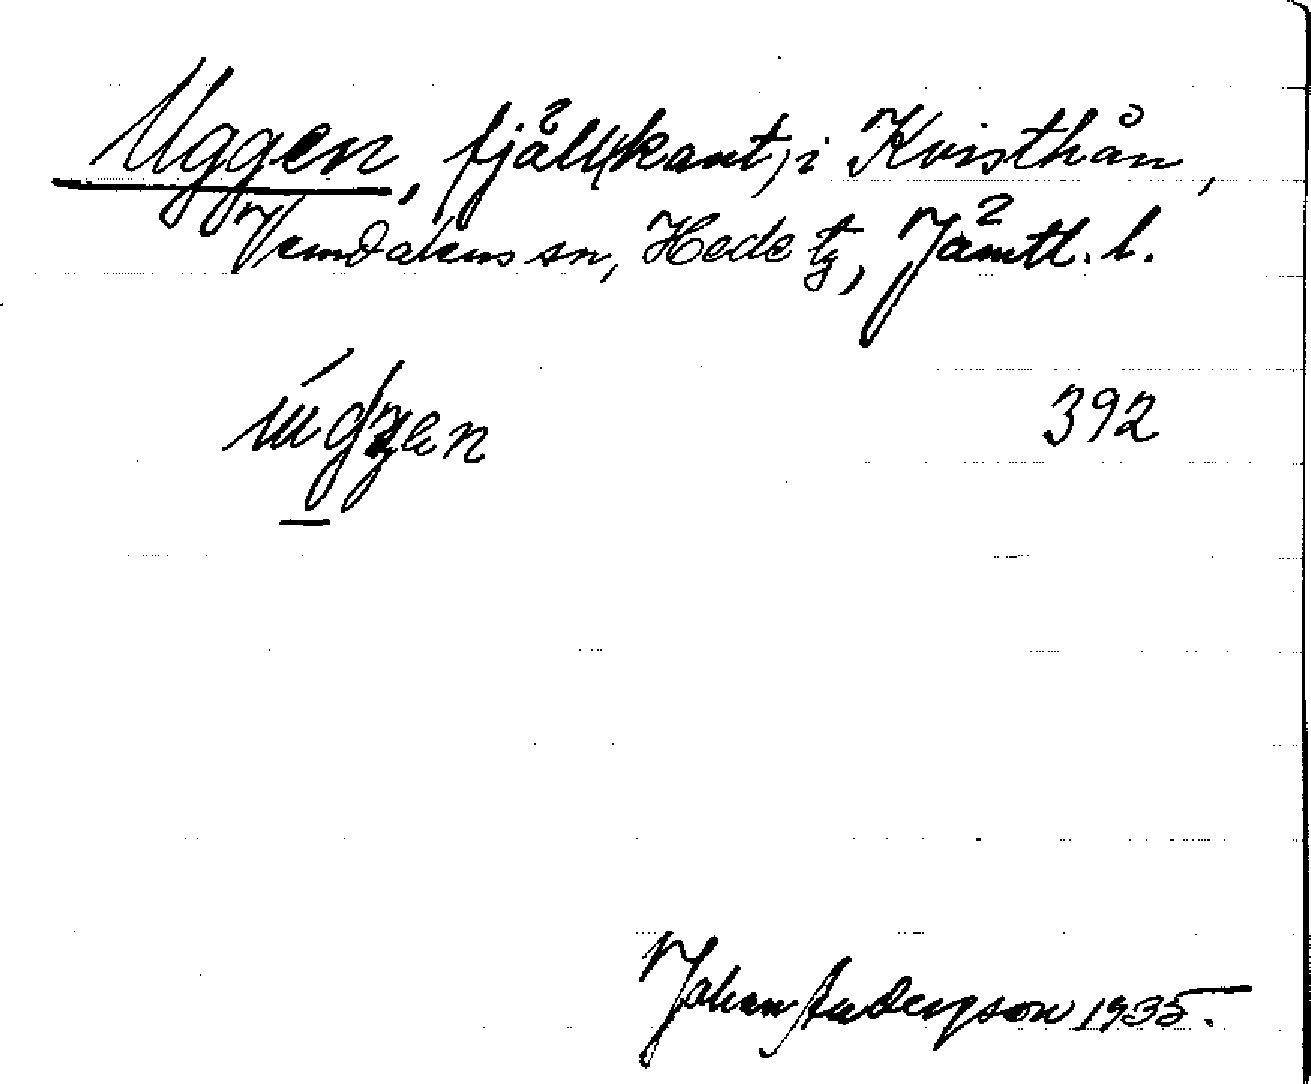 Uggen, fjäll(kant) i Kvisthån,
Vemdalens sn, Hede tg, Jämtl. l.
392
Johan Anderson 1935.